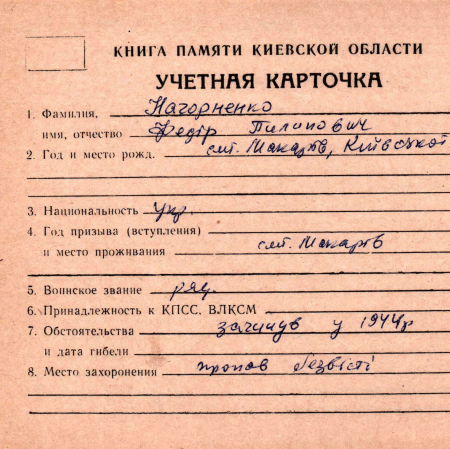 КНИГА ПАМЯТИ КИЕВСКОЙ ОБЛАСТИ
УЧЕТНАЯ КАРТОЧКА
1. Фамилия, Нагорненко
имя, отчество Федір Пилипович
2. Год и место рожд. смт. Макарів, Київської
3. Национальность укр.
4. Год призыва (вступления)
и место проживания смт. Макарів
5. Воинское звание ряд.
6. Принадлежность к КПСС, ВЛКСМ
7. Обстоятельства загинув у 1944р
и дата гибели
8. Место захоронения пропав безвісті